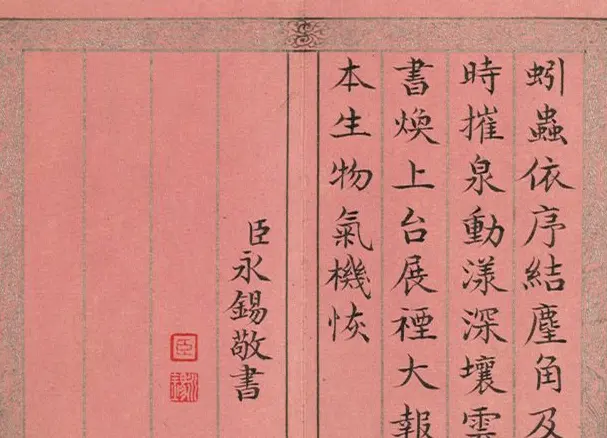 蚓蟲依序結麈角及
時摧泉動漾深壤雲
書煥上台展禋大報
本生物氣機恢
臣永錫敬書
臣